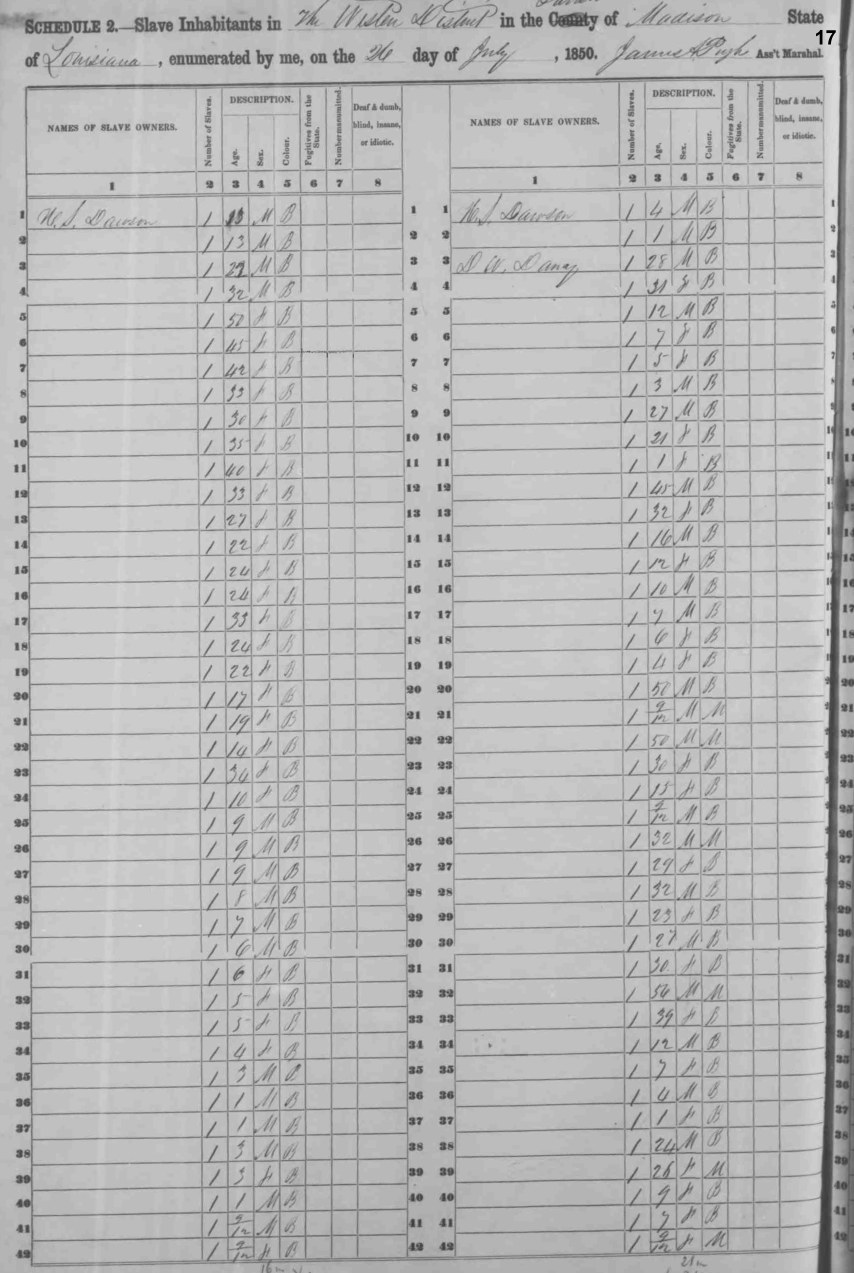 SCHEDULE 2.—Slave Inhabitants in The Western District in the County of Madison State
17
of Louisiana, enumerated by me, on the 26 day of July, 1850. James A Pugh Ass't Marshal.
NAMES OF SLAVE OWNERS. Number of Slaves. DESCRIPTION. Age. Sex. Colour. Fugitives from the State. Number manumitted. Deaf & dumb, blind, insane, or idiotic. NAMES OF SLAVE OWNERS. Number of Slaves. DESCRIPTION. Age. Sex. Colour. Fugitives from the State. Number manumitted. Deaf & dumb, blind, insane, or idiotic.
1 2 3 4 5 6 7 8 1 2 3 4 5 6 7 8
1 Dawson 1 13 M B 1 1 Dawson 1 4 M B
2 1 13 M B 2 2 1 1 M B
3 1 29 M B 3 3 D W. 1 28 M B
4 1 32 M B 4 4 1 31 f B
5 1 50 f B 5 5 1 12 M B
6 1 45 f B 6 6 1 7 f B
7 1 42 f B 7 7 1 5 f B
8 1 33 f B 8 8 1 3 M B
9 1 30 f B 9 9 1 27 M B
10 1 35 f B 10 10 1 21 f B
11 1 40 f B 11 11 1 1 f B
12 1 33 f B 12 12 1 45 M B
13 1 27 f B 13 13 1 32 f B
14 1 22 f B 14 14 1 16 M B
15 1 24 f B 15 15 1 12 f B
16 1 24 f B 16 16 1 10 M B
17 1 33 f B 17 17 1 7 M B
18 1 24 f B 18 18 1 6 f B
19 1 22 f B 19 19 1 4 f B
20 1 17 f B 20 20 1 50 M B
21 1 19 f B 21 21 1 9/12 M M
22 1 14 f B 22 22 1 50 M M
23 1 34 f B 23 23 1 30 f B
24 1 10 f B 24 24 1 18 f B
25 1 9 M B 25 25 1 9/12 M B
26 1 9 M B 26 26 1 32 M M
27 1 9 M B 27 27 1 29 f B
28 1 8 M B 28 28 1 32 M B
29 1 7 M B 29 29 1 23 f B
30 1 6 M B 30 30 1 27 M B
31 1 6 f B 31 31 1 30 f B
32 1 5 f B 32 32 1 54 M M
33 1 5 f B 33 33 1 39 f B
34 1 4 f B 34 34 1 12 M B
35 1 3 M B 35 35 1 7 f B
36 1 1 M B 36 36 1 4 M B
37 1 1 M B 37 37 1 1 f B
38 1 3 M B 38 38 1 24 M B
39 1 3 f B 39 39 1 26 f M
40 1 1 M B 40 40 1 9 f B
41 1 9/12 M B 41 41 1 7 f B
42 1 9/12 f B 42 42 1 9/12 f M